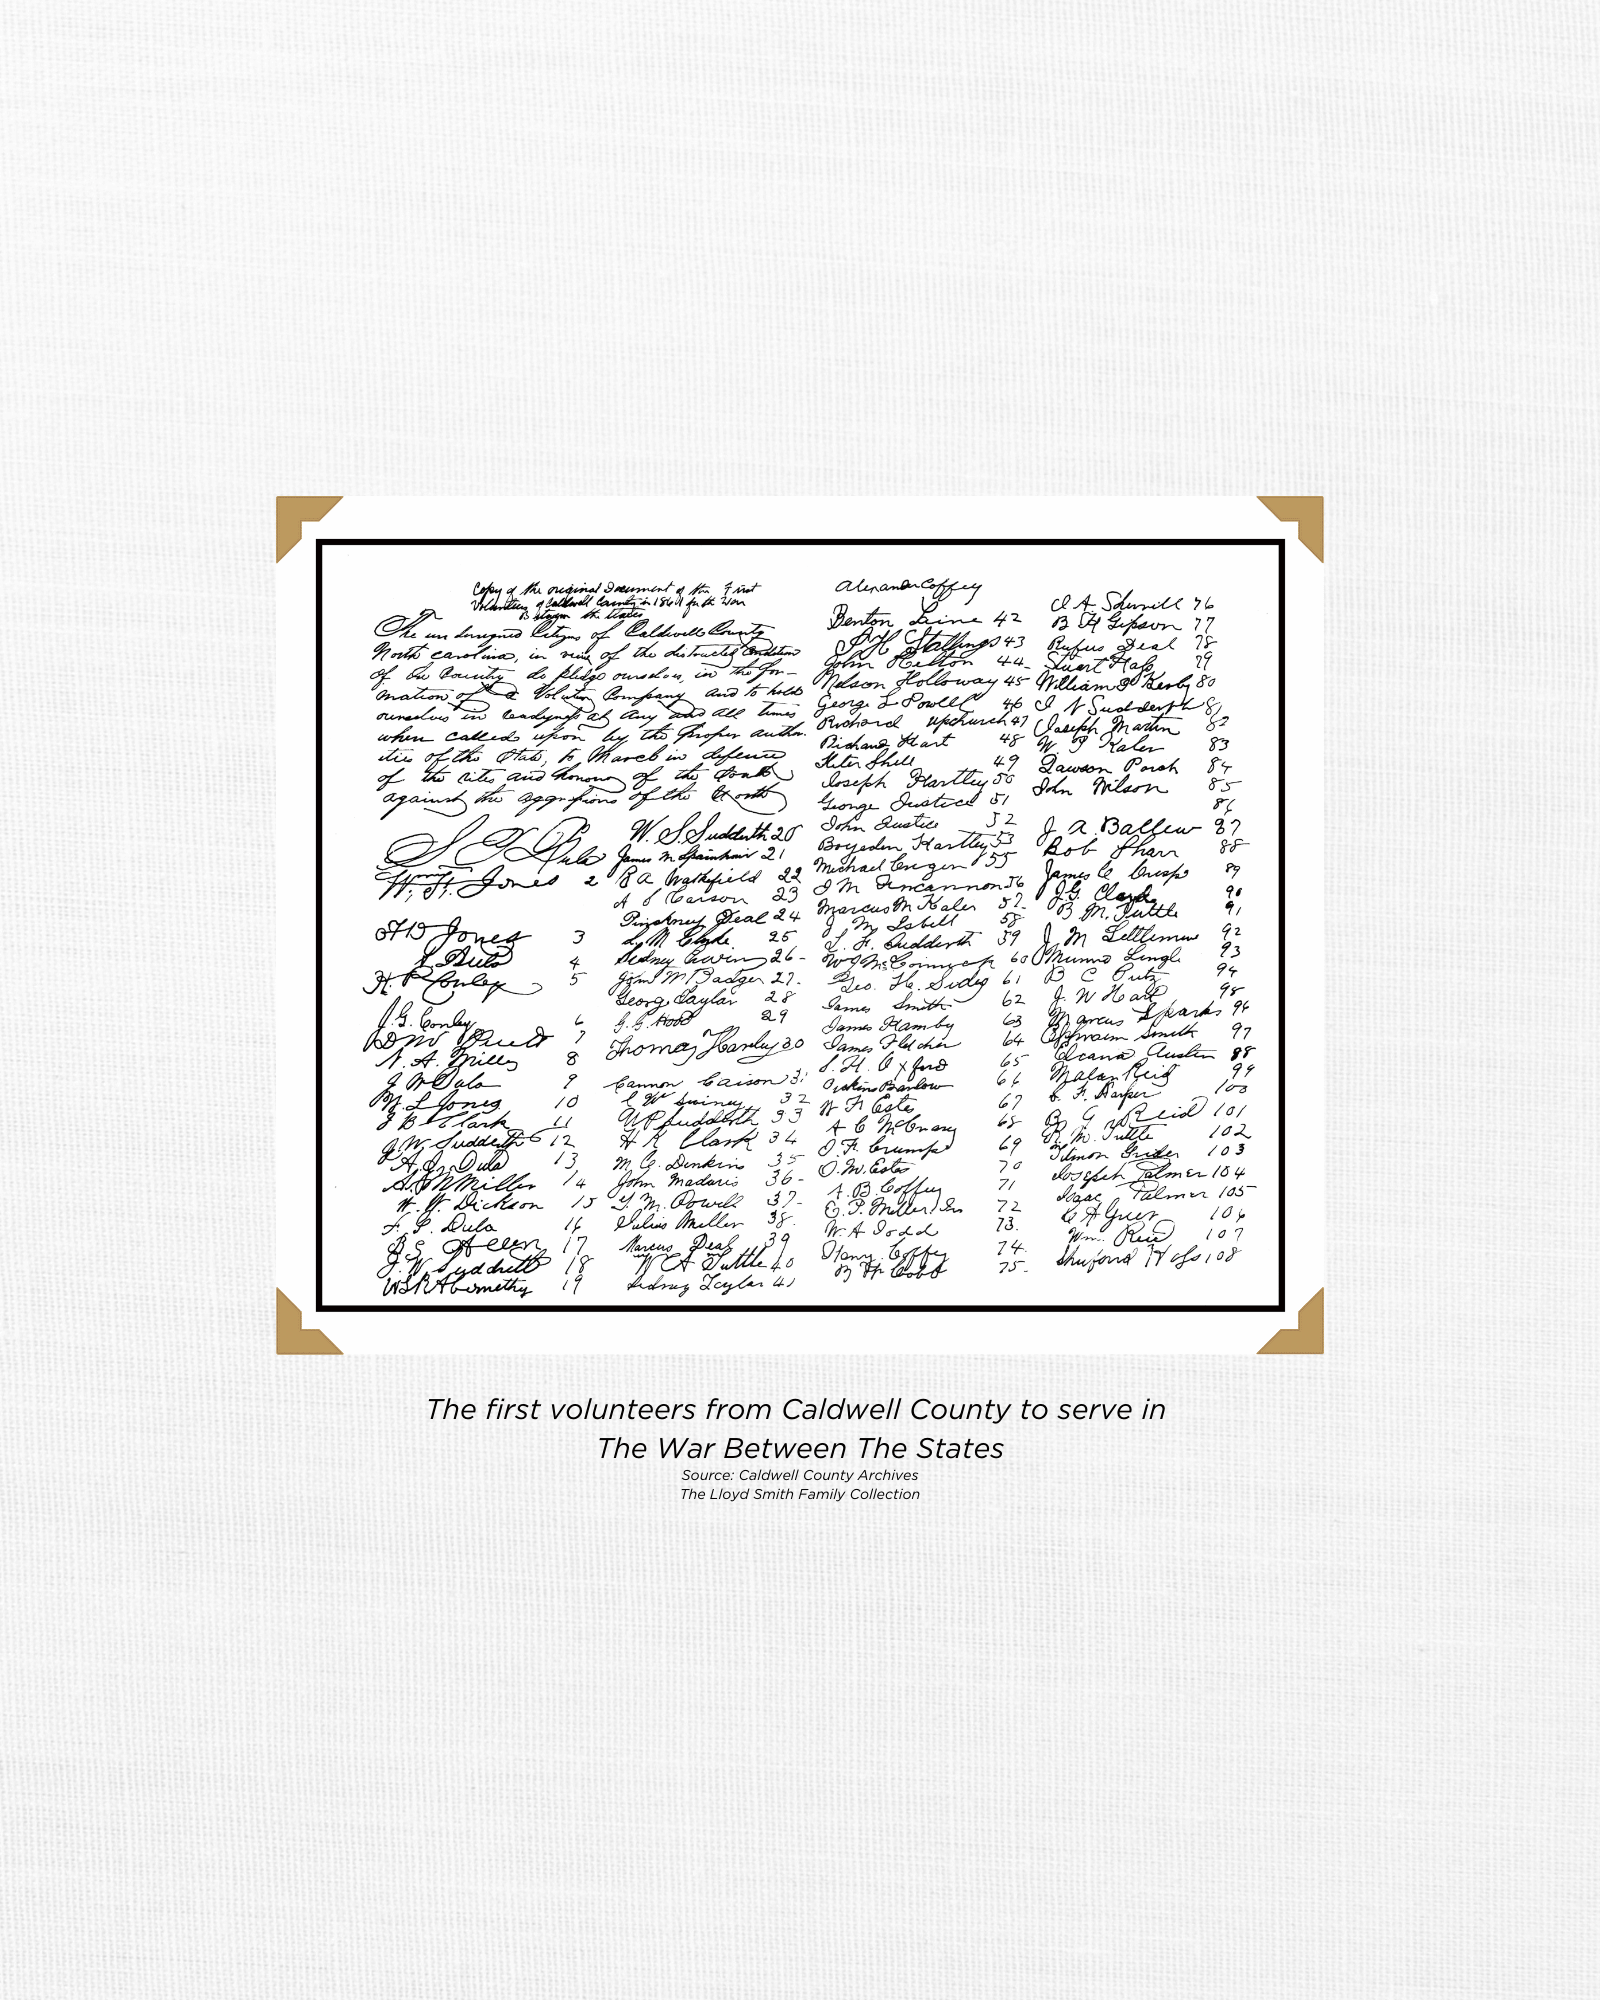 Copy of the original Document of the First
Volunteers of Caldwell County in 1861 for the War
Between the States
The undersigned Citizens of Caldwell County
North carolina, in view of the distracted Condition
of the Country do pledge ourselves, in the for-
mation of a Company and to hold
ourselves in at any and all times
when called upon by the Proper autho.
ities of the State, to March in defence
of the and honour of the South
against the aggressions of the North
S Dula
W. H. Jones 2
Jones 3
Dula 4
H. Conley 5
J. G. Conley 6
7
N. A. Miller 8
J W Dula 9
M. L. Jones 10
J B Clark 11
J. W. Sudderth 12
A. J. Dula 13
Miller 14
W. W. Dickson 15
F. P. Dula 16
B. S. Allen 17
J. W. Sudderth 18
WSR Abernethy 19
W. S. Sudderth 20
James M. Spainhour 21
R A Wakefield 22
A Carson 23
Pinckney Deal 24
L. M Clyde. 25
Sidney 26-
John M Badger 27-
George Taylor 28
G. G. Hood 29
Thomas Hanley 30
Cannon Caison 31
C W 32
Sudderth 33
H K Clark 34
M. C. Dinkins 35
John Madaris 36-
T. M. Powell 37-
Julius Miller 38.
Marcus Deal 39
W A Tuttle 40
Sidney Taylor 41
Alexander Coffey
Benton 42
H Stallings 43
John Helton 44-
Nelson Holloway 45
George L Powell 46
Richard Upchurch 47
Richard Hart 48
Peter Shell 49
Joseph Hartley 50
George Justice 51
John Justice 52
Boyeden Hartley 53
Michael 55
J M Fincannon 56
Marcus M Kaler 57-
J M Isbell 58
L. H. Sudderth 59
60
Geo. H. 61
James Smith 62
James Hamby 63
James Fletcher 64
S. H. Oxford 65
Barlow 66
W F Estes 67
A C McCrary 68
J. F. Crump 69
O. M. Estes 70
A. B. Coffey 71
C. P. Miller Sn 72
W. A Dodd 73.
Henry Coffey 74.
Cobb 75-
J A Sherrill 76
B H Gipson 77
Rufus Deal 78
Stuart Hass 79
William Kerby 80
J N Sudderth 81
Joseph Martin 82
W. P Kaler 83
Dawson Poarch 84
John Wilson 85
86
J A. Ballew 87
Bob Sharr 88
James C Crisp 89
J. G. Clark 90
B. M. Tuttle 91
J M Settlemire 92
Lingle 93
B C 94
J. W Hall 95
Marcus Sparks 96
Ephraim Smith 97
Elcana Austin 98
Malan Reid 99
C. F. Harper 100
B G Reid 101
R. M. Tuttle 102
Grider 103
Joseph Palmer 104
Isaac Palmer 105
C A Greer 106
Wm. Reid 107
Shuford Hass 108
The first volunteers from Caldwell County to serve in
The War Between The States
Source: Caldwell County Archives
The Lloyd Smith Family Collection